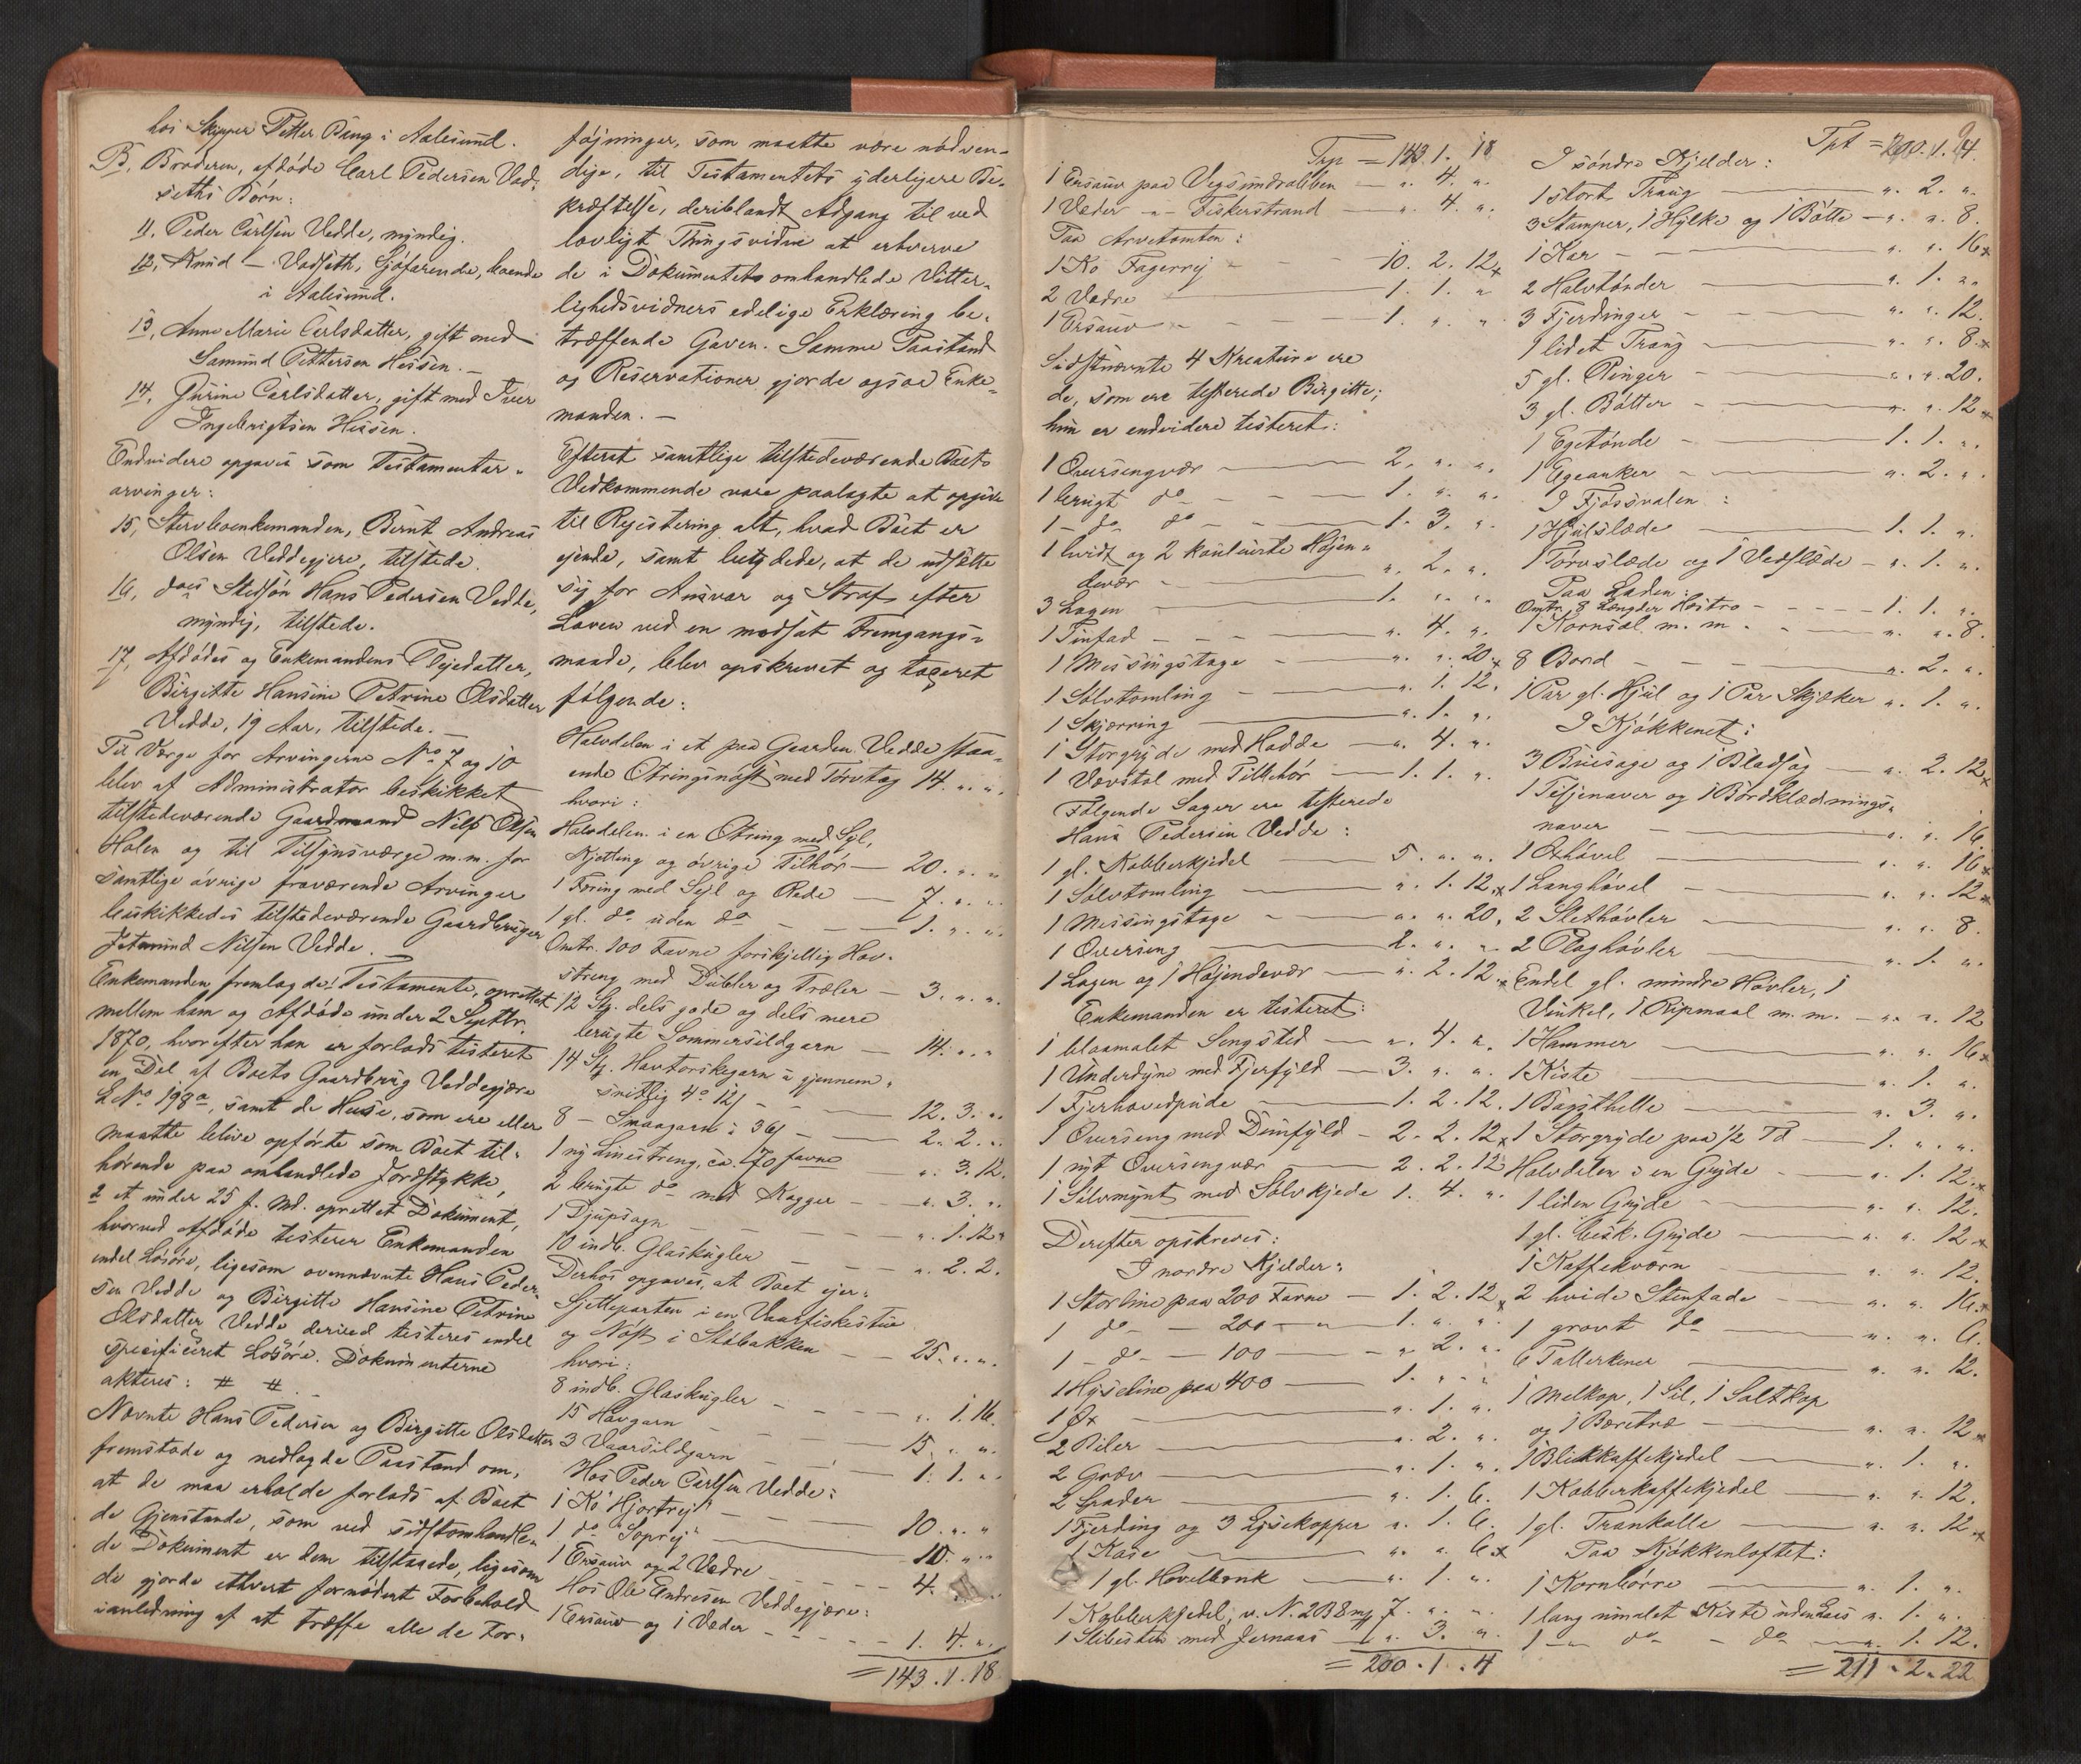 hos Skipper Petter Bang i Aalesund.
B, Broderen, afdøde Carl Pedersen Vad-
seths Børn:
11, Peder Carlsen Vedde, myndig.
12, Knud — Vadseth, Sjøfarende, boende
i Aalesund.
13, Anne Marie Carlsdatter, gift med
Samund Pettersen Hessen. —
14, Jurine Carlsdatter, gift med Iver
Ingebrigtsen Hessen.
Endvidere opgaves som Testamentar-
arvinger:
15, Stervboenkemanden, Bernt Andreas
Olsen Veddegjere, tilstede.
16, Stedsøn Hans Pedersen Vedde,
myndig, tilstede.
17, Afdødes og Enkemandens Plejedatter,
Birgitte Hansine Petrine Olsdatter
Vedde, 19 Aar, tilstede. —
Til Værge for Arvingerne No 7 og 10
blev af Administrator beskikket
tilstedeværende Gaardmand Nils Olsen
Holen og til Tilsynsværge m.m. for
samtlige øvrige fraværende Arvinger
beskikkedes tilstedeværende Gaardbruger
Jetmund Nilsen Vedde.
Enkemanden fremlagde: Testamente, oprettet
mellem ham og Afdøde under 2 Septbr.
1870, hvorefter han er forlods testeret
en Del af Boets Gaardbrug Veddegjære
L.No 198a, samt de Huse, som ere eller
maatte blive opførte som Boet til-
hørende paa omhandlede Jordstykke,
2 et under 25 f. Md. oprettet Dokument,
hvorved Afdøde testerer Enkemanden
endel Løsøre, ligesom ovennævnte Hans Peder-
sen Vedde og Birgitte Hansine Petrine
Olsdatter Vedde derved testeres endel
specificeret Løsøre. Dokumenterne
akteres: # #
Nævnte Hans Pedersen og Birgitte Olsdatter
fremstode og nedlagde Paastand om,
at de maa erholde forlods af Boet
de Gjenstande, som ved sidstomhandle-
de Dokument er dem tillagede, ligesom
de gjorde ethvert fornødent Forbehold
i anledning af at træffe alle de For-
føjninger, som maatte være nødven-
dige, til Testamentets yderligere Be-
kræftelse, deriblandt Adgang til ved
lovligt Thingsvidne at erhverve
de i Dokumentets omhandlede Vitter-
lighedsvidners edelige Erklæring be-
træffende Gaven. Samme Paastand
og Reservationer gjorde ogsaa Enke-
manden. —
Efterat samtlige tilstedeværende Boets
Vedkommende vare paalagte at opgive
til Registering alt, hvad Boet er
ejende, samt betydede, at de udsætte
sig for Ansvar og Straf efter
Loven ved en modsat Fremgangs-
maade, blev opskrevet og taxeret
følgende:
Halvdelen i et paa Gaarden Vedde staa-
ende Otringsnøst med Torvtag 14. „ „
hvori:
Halvdelen i en Otring med Sejl,
Kjetting og øvrige Tilhør — 20. „ „
1 Færing med Sejl og Rade — 7. „ „
1 gl. do uden do — 1. „ „
Omtr. 100 Favne forskjellig Hav-
streng med Dubler og Træler — 3. „ „
12 Stk. dels gode og dels mere
brugte Sommersildgarn — 14. „ „
14 Stk. Havtorskegarn à gjennem-
snitlig 4o 12s — 12. 3. „
8 — Smaagarn à 36s — 2. 2. „
1 ny Linestreng, ca. 170 favne „ 3. 12.
2 brugte do med Kagger — „ 3. „
1 Djupsagn — „ 1. 12
10 indb. Glaskugler — „ 2. 2.
Derhos opgaves, at Boet ejer
Sjetteparten i en Vaarfiskestue
og Nøst i Støbakken — 25. „ „
hvori:
8 indb. Glaskugler — „ 1. 16.
15 Havgarn — 15. „ „
3 Vaarsildgarn — 1. 1. „
Hos Peder Carlsen Vedde:
1 Ko "Hjortrej" — 10. „ „
1 do "Soprej" — 10. „ „
1 Ersauv og 2 Vædre — 4.
Hos Ole Andresen Veddegjære:
1 Ersauv og 1 Væder — 1. 4. „
= 143. 1. 18
Trsp = 143. 1. 18
1 Ersauv paa Vegsundralben — „ 4. „
1 Væder — „ — Fiskerstrand — „ 4. „
Paa Arvetomten:
1 Ko Fagerrej — 10. 2. 12
2 Vædre — 1. 1. „
1 Ersauv — 1. „ „
Sidstnævnte 4 Kreature ere
de, som ere testerede Birgitte;
hun er endvidere testeret:
1 Oversengvær — 2. „ „
1 brugt do — 1. „ „
1 — do do — 1. 3. „
1 hvidt og 2 koulørte Højen-
devær — „ 2. „
3 Lagen — 1. „ „
1 Tinfad — „ 4. „
1 Messingstage — „ „ 20
1 Sølvtomling — „ 1. 12.
1 Skjærring — „ 1. „
1 Storgryde med Hadde — „ 4. „
1 Vævstol med Tillehør — 1. 1. „
Følgende Sager ere testerede
Hans Pedersen Vedde:
1 gl. Kobberkjedel — 5. „ „
1 Sølvtomling — „ 1. 12
1 Messingstage — „ „ 20.
1 Overseng — 2. „ „
1 Lagen og 1 Højendevær — „ 2. 12
Enkemanden er testeret:
1 blaamalet Sengsted — „ 4. „
1 Underdyne med Fjerfyld — 3. „ „
1 Fjerhovedpude — 1. 2. 12.
1 Overseng med Dunfyld — 2. 2. 12
1 nyt Oversengvær — 2. 2. 12
1 Sølvmynt med Sølvkjede 1. 4. „
Derefter opskreves:
I nordre Kjelder:
1 Storline paa 200 Favne — 1. 2. 12
1 do — 200 — „ 1. „ „
1 — do — 100 — „ 2. „
1 Hyseline paa 400 — 1. „ „
1 Øx — „ 1. „
2 Biler — „ 2. „
2 Græv — „ 1. „
2 Spader — „ 1. 6.
1 Fjerding og 3 Lysekopper „ 1. 6.
1 Kase — „ „ 6
1 gl. Hovelbenk — „ 1. „
1 Kobberkjedel, v. N. 2 B 8 mrk 7. „ „
1 Slibesten med Jernaas — „ 3. „
= 200. 1. 4
Tpt = 200. 1. 4.
I søndre Kjelder:
1 stort Traug — „ 2. „
3 Stamper, 1 Hylke og 1 Bøtte — „ „ 8.
1 Kar — „ „ 16
2 Halvtønder — „ 1. „
3 Fjerdinger — „ „ 12.
1 lidet Traug — „ „ 8.
5 gl. Ringer — „ „ 20.
3 gl. Bøtter — „ „ 12
1 Egetønde — 1. 1. „
1 Egeanker — „ 2. „
I Fjøssvalen:
1 Hjulslæde — 1. 1. „
1 Torvslæde og 1 Vedslæde — „ 1. „
Paa Laden:
Omtr. 8 Længder Høstro — 1. 1. „
1 Kornsæl m. m. — „ „ 8.
8 Bord — „ 2. „
1 Par gl. Hjul og 1 Par Skjæker „ 1. „
I Kjøkkenet:
3 Buesage og 1 Bladsag — „ 2. 12
1 Teljenaver og 1 Bordklædnings-
naver — „ „ 16
1 Oxhøvel — „ „ 16
1 Langhøvel — „ „ 12
2 Slethøvler — „ „ 8.
2 Ploghøvler — „ 1. „
Endel gl. mindre Høvler, 1
Vinkel, 1 Ripmaal m. m. — „ „ 12
1 Hammer — „ „ 16
1 Kiste — „ 1. „
1 Bagsthelle — „ 3. „
1 Storgryde paa 1/2 Td — 1. „ „
Halvdelen i en Gryde — „ 1. 12.
1 liden Gryde — „ „ 12.
1 gl. besk. Gryde — „ „ 12
1 Kaffekværn — „ „ 12.
2 hvide Stenfade — „ „ 16.
1 grovt do — „ „ 6.
6 Tallerkener — „ „ 12.
1 Melkop, 1 Sil, 1 Saltkop
og 1 Bæretræ — „ „ 12
1 Blikkaffekjedel — „ 1. „
1 Kobberkaffekjedel — „ „ 12.
1 gl. Trankolle — „ „ 12
Paa Kjøkkenloftet:
1 Kornbørre — „ 1. „
1 lang umalet Kiste uden Laas „ 1. „
1 — „ do — do — „ 1. 12.
= 211. 2. 22